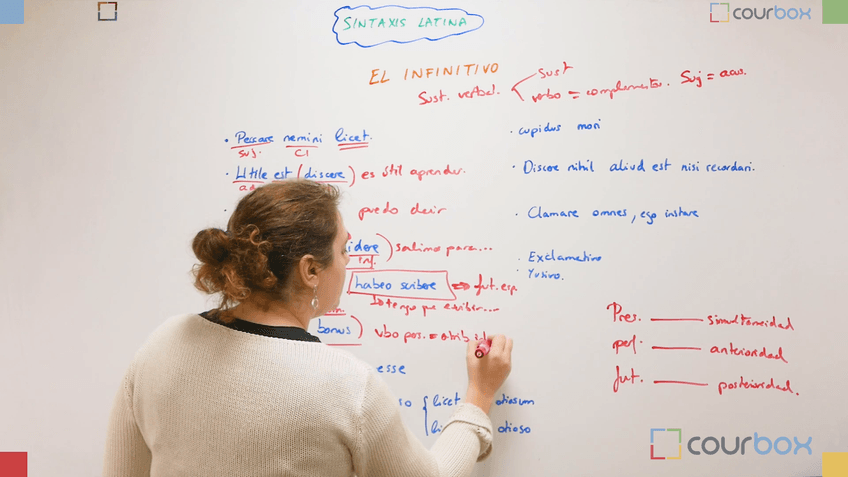 courbox
SINTAXIS LATINA
EL INFINITIVO
Sust. verbal.
Sust
verbo = complementos. Suj = acus.
· Peccare nemini licet.
suj. CI
· Utile est (discere) es útil aprender.
puedo decir
) salimos para...
inf.
habeo scribere ⇒ fut. esp.
tengo que escribir...
bonus) vbo pas. =
esse
licet otiosum
otioso
· cupidus mori
· Discere nihil aliud est nisi recordari.
· Clamare omnes, ego instare
· Exclamativo
· Yusivo.
Pres. simultaneidad
perf. anterioridad
fut. posterioridad.
courbox